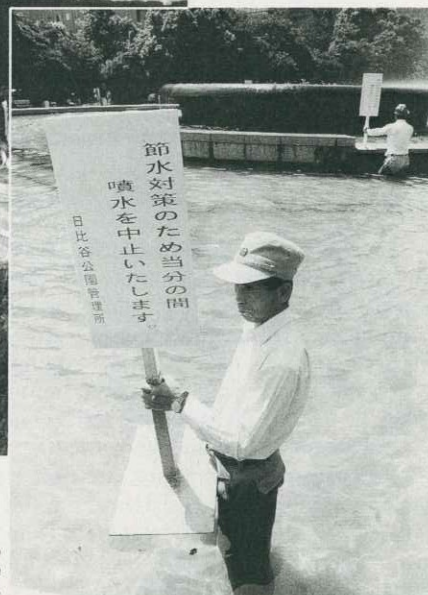 節水対策のため当分の間
噴水を中止いたします。
日比谷公園管理所